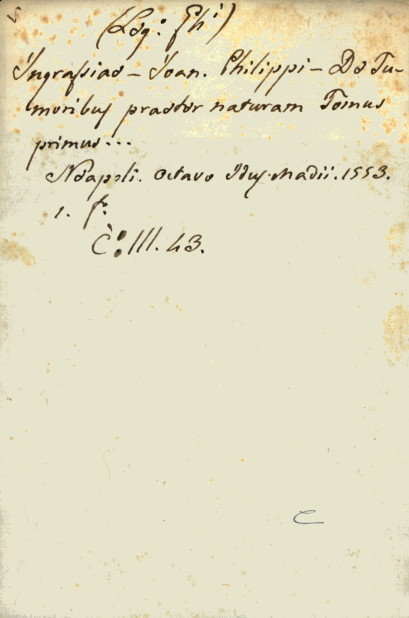 (Leg: Ghi)
Ingrassiae - Joan. Philippi - De Tu-
moribus praeter naturam Tomus
primus...
Neapoli. Octavo Idus Madii. 1553.
1. f.
C: III. 43.
C